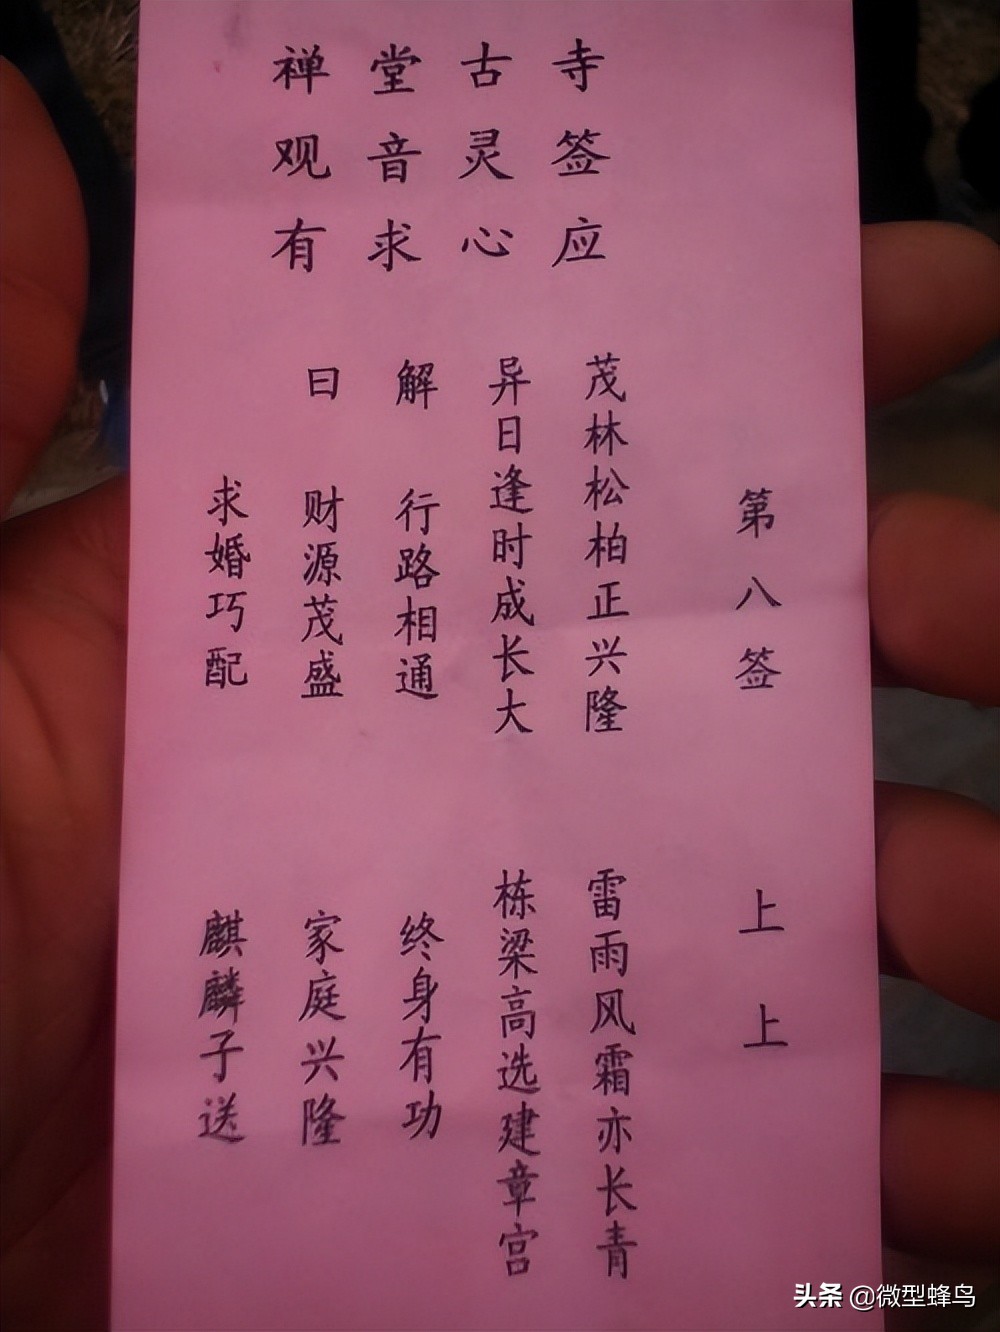 禅堂古寺
观音灵签
有求心应
第八签 上上
茂林松柏正兴隆 雷雨风霜亦长青
异日逢时成长大 栋梁高选建章宫
解 行路相通 终身有功
曰 财源茂盛 家庭兴隆
求婚巧配 麒麟子送
头条 @微型蜂鸟